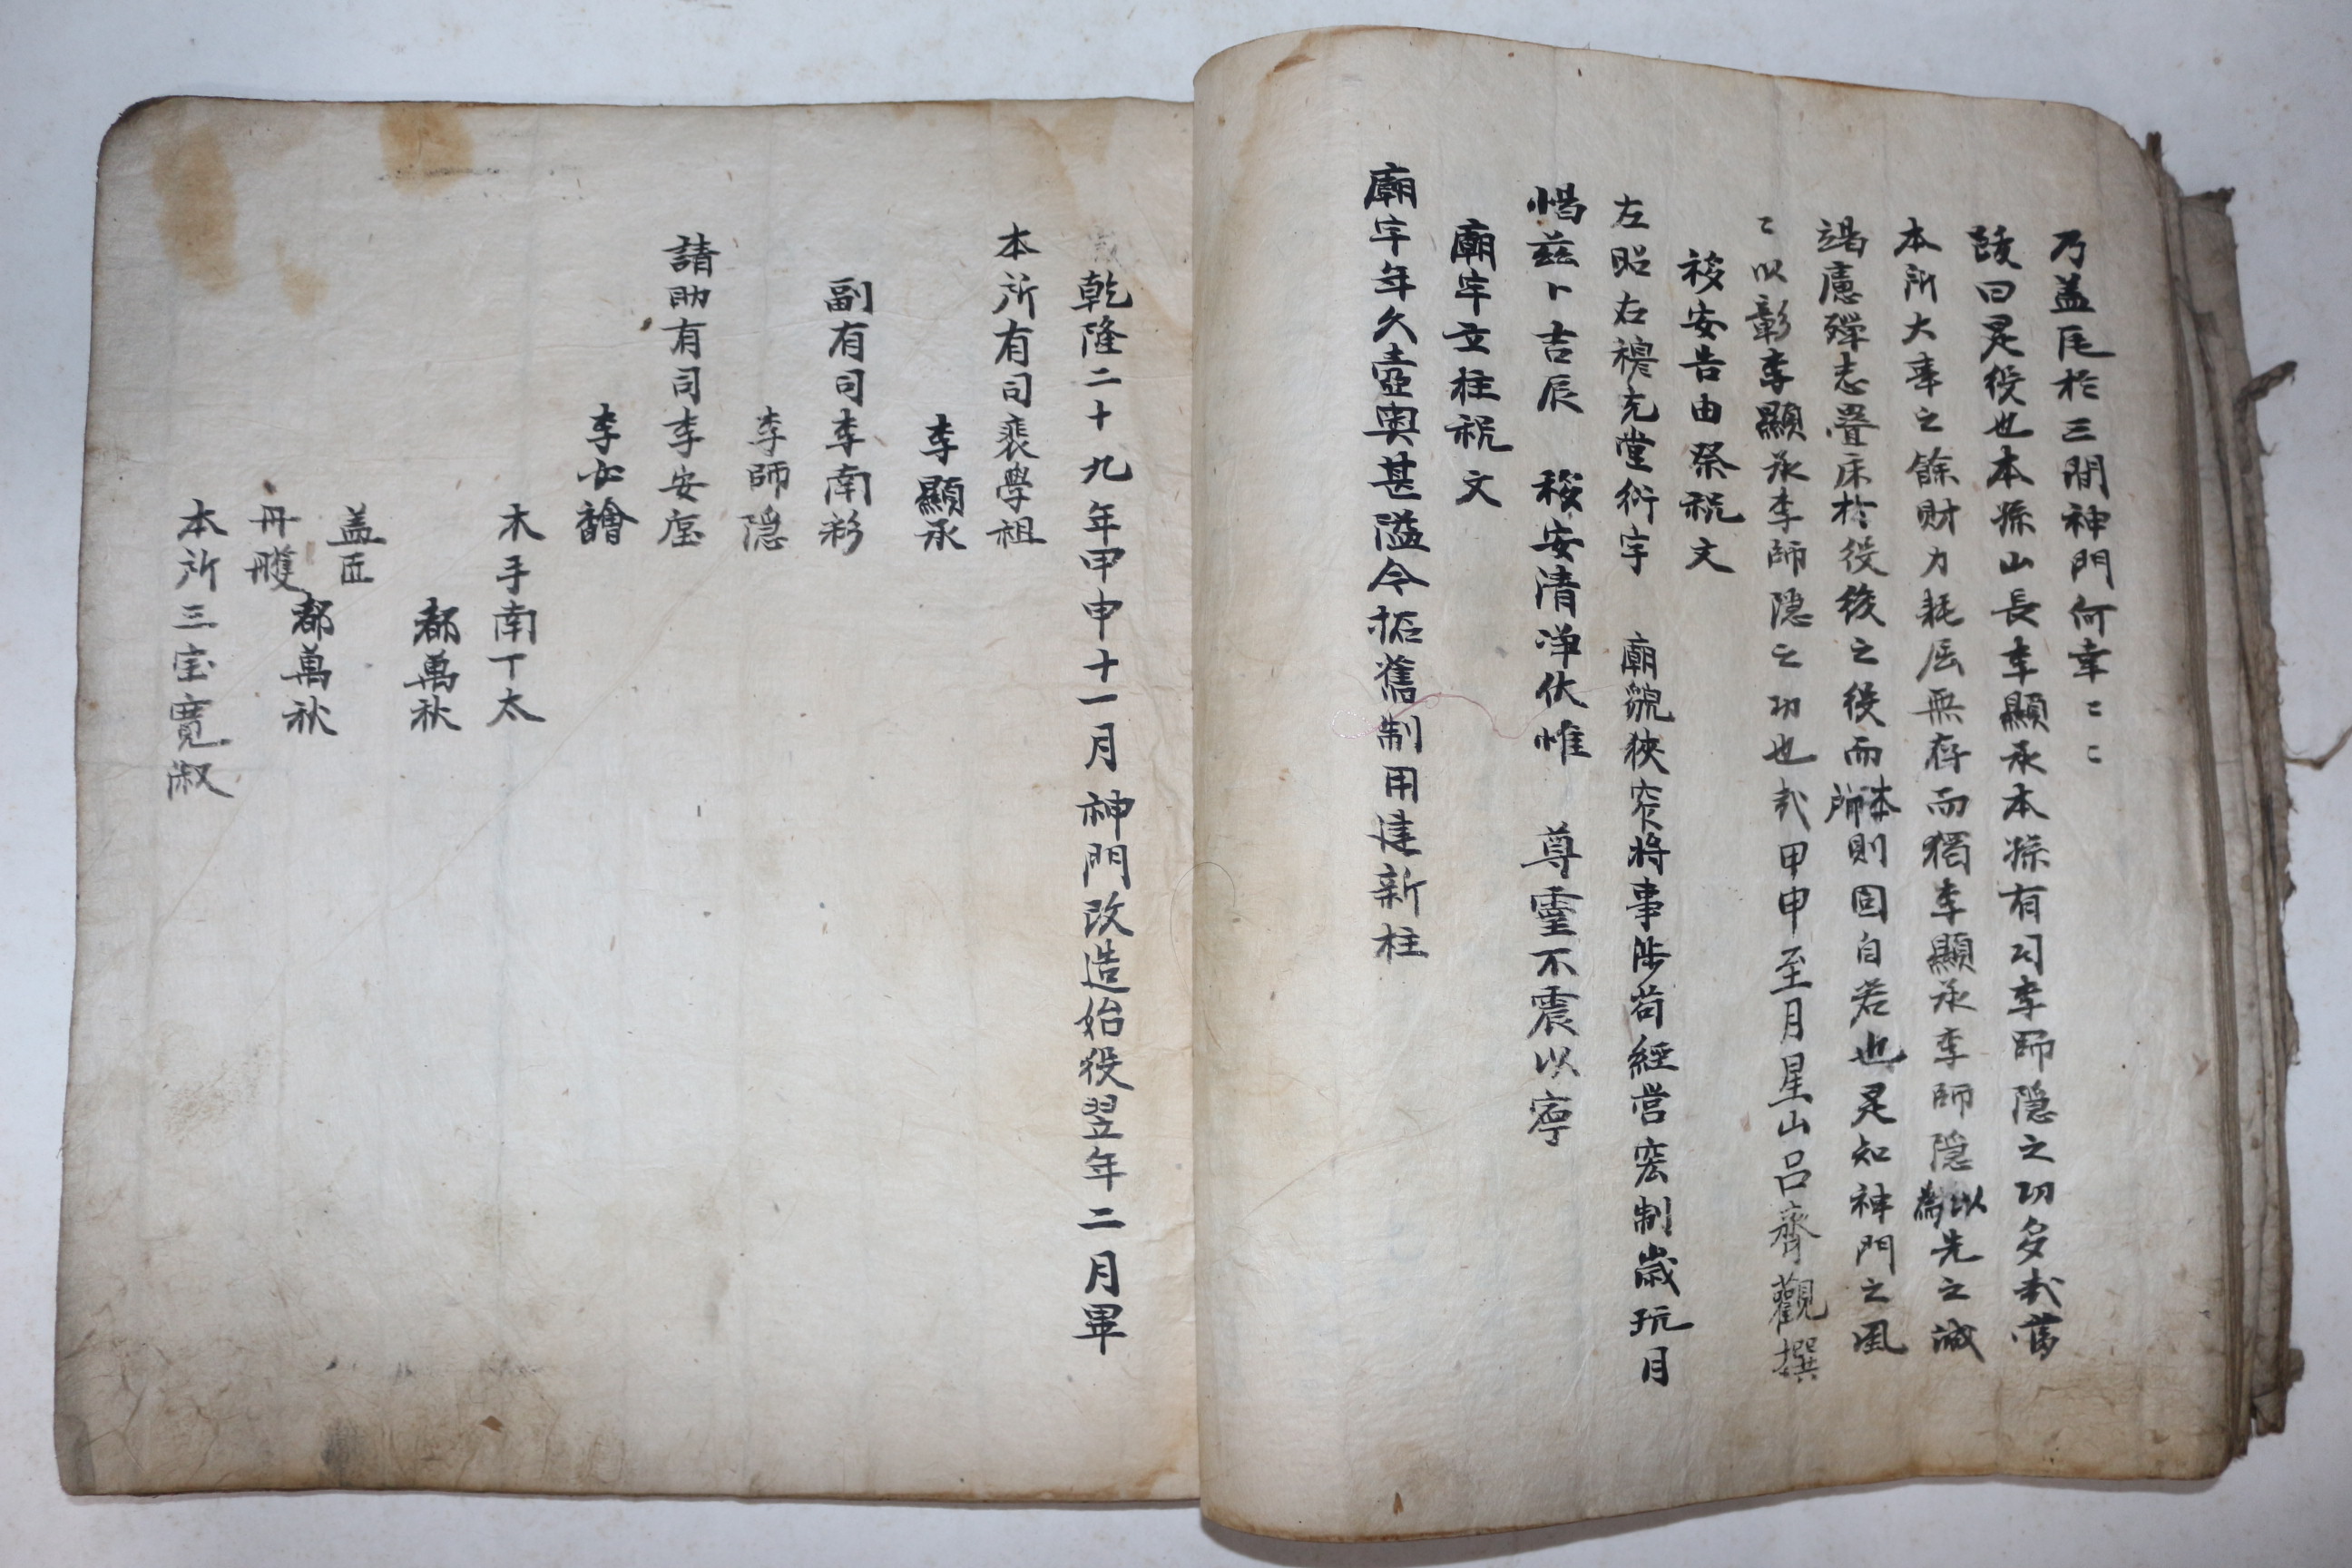 乃盖瓦於三間神門何幸〻〻
跋曰是役也本孫山長李顯承本孫有司李師隱之功多哉舊
本所大事之餘財力耗屈無存而獨李顯承李師隱以爲先之誠
竭慮殫志疊床於役後之役而本所則固自若也是知神門之風
〻以彰李顯承李師隱之功也哉甲申至月星山呂齊觀撰
移安告由祭祝文
左昭右穆充堂衍宇 廟貌狹窄將事陟苟經营宏制歲玩月
愒茲卜吉辰 移安清净伏惟 尊靈不震以寧
廟宇立柱祝文
廟宇年久壺奧甚隘今拓舊制用建新柱
乾隆二十九年甲申十一月神門改造始役翌年二月畢
本所有司裴學祖
李顯承
副有司李南彩
李師隱
請助有司李安
李
木手南丁太
都萬秋
盖匠
都萬秋
丹雘
本所三宝寛淑